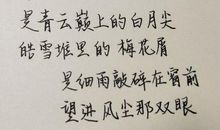 是青云巅上的白月尖
皓雪堆里的 梅花屑
是细雨敲碎在窗前
望进风尘那双眼